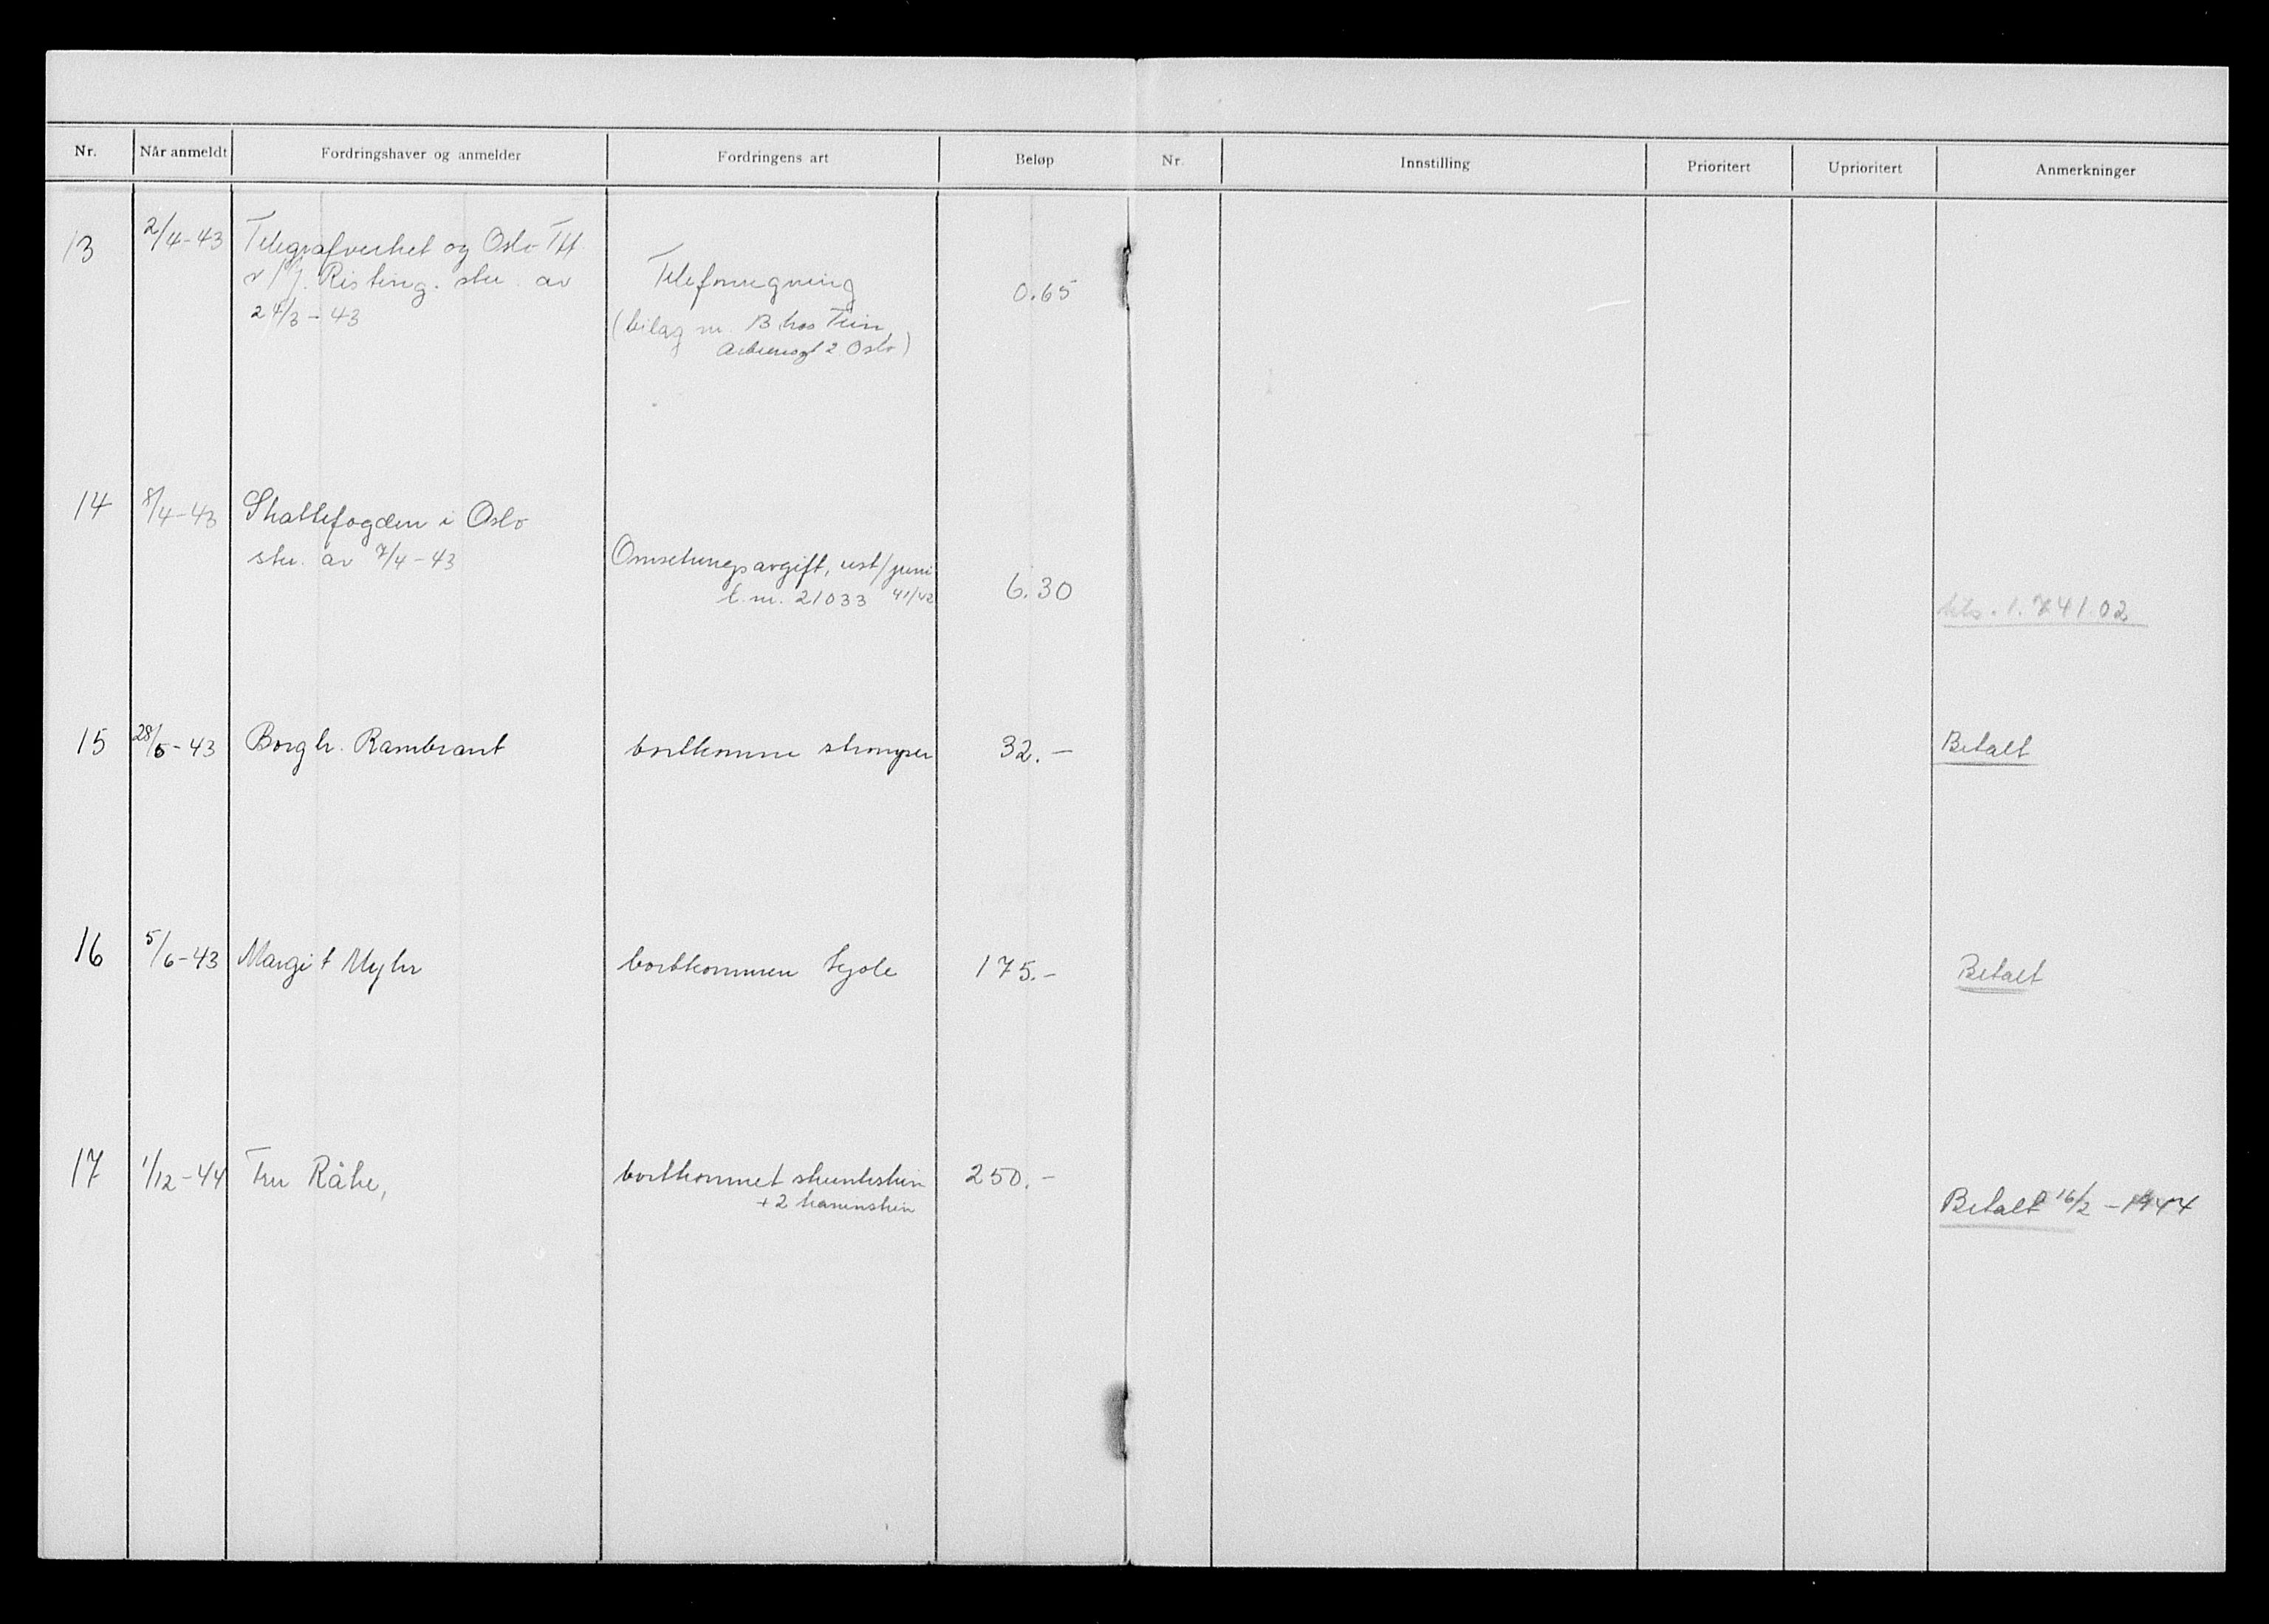 Nr. Når anmeldt Fordringshaver og anmelder Fordringens art Beløp Nr. Innstilling Prioritert Uprioritert Anmerkninger
13 2/4-43 Telegrafverket og Oslo Tlf.
v/ J. Risting. skr. av
24/3-43
Telefonregning 0.65
(bilag nr. 13 hos
Oslo)
14 8/4-43 Skattefogden i Oslo
skr. av 7/4-43
Omsetningsavgift, rest/juni
l.nr. 21033 41/42 6.30
kr. 1.741.02
15 28/5-43 Borgh. Rambraut bortkomne strømper 32.- Betalt
16 5/6-43 Margit Myhr bortkommen kjole 175.- Betalt
17 1/12-44 Fru Råke, bortkommet skunkskin 250.-
+ 2 kaninskin
Betalt 16/2-1944